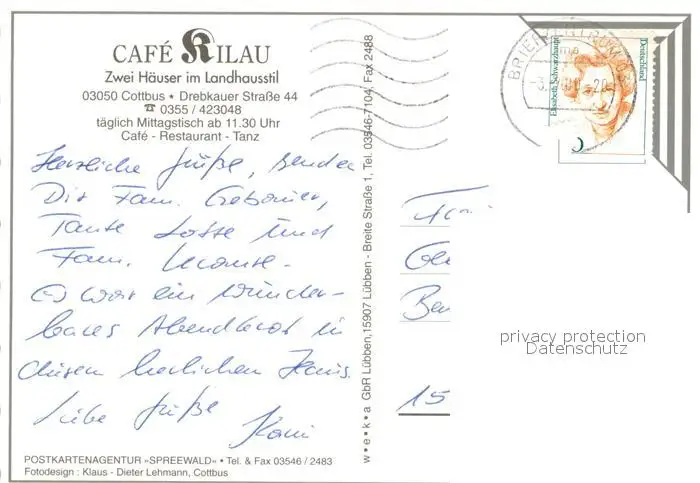 CAFÉ KILAU
Zwei Häuser im Landhausstil
03050 Cottbus ★ Drebkauer Straße 44
☎ 0355 / 423048
täglich Mittagstisch ab 11.30 Uhr
Café - Restaurant - Tanz
Herzliche Grüße, senden
Dir Fam.
Tante Lotte und
Fam.
Es war ein wunder-
bares Abendbrot in
diesem herrlichen Haus.
Liebe Grüße
POSTKARTENAGENTUR »SPREEWALD« • Tel. & Fax 03546 / 2483
Fotodesign : Klaus - Dieter Lehmann, Cottbus
w•e•k•a GbR Lübben,15907 Lübben - Breite Straße 1, Tel. 03546-7104, Fax 2488
BRIEFZENTRUM 03
Elisabeth Schwarzhaupt
Deutschland
15
privacy protection
Datenschutz